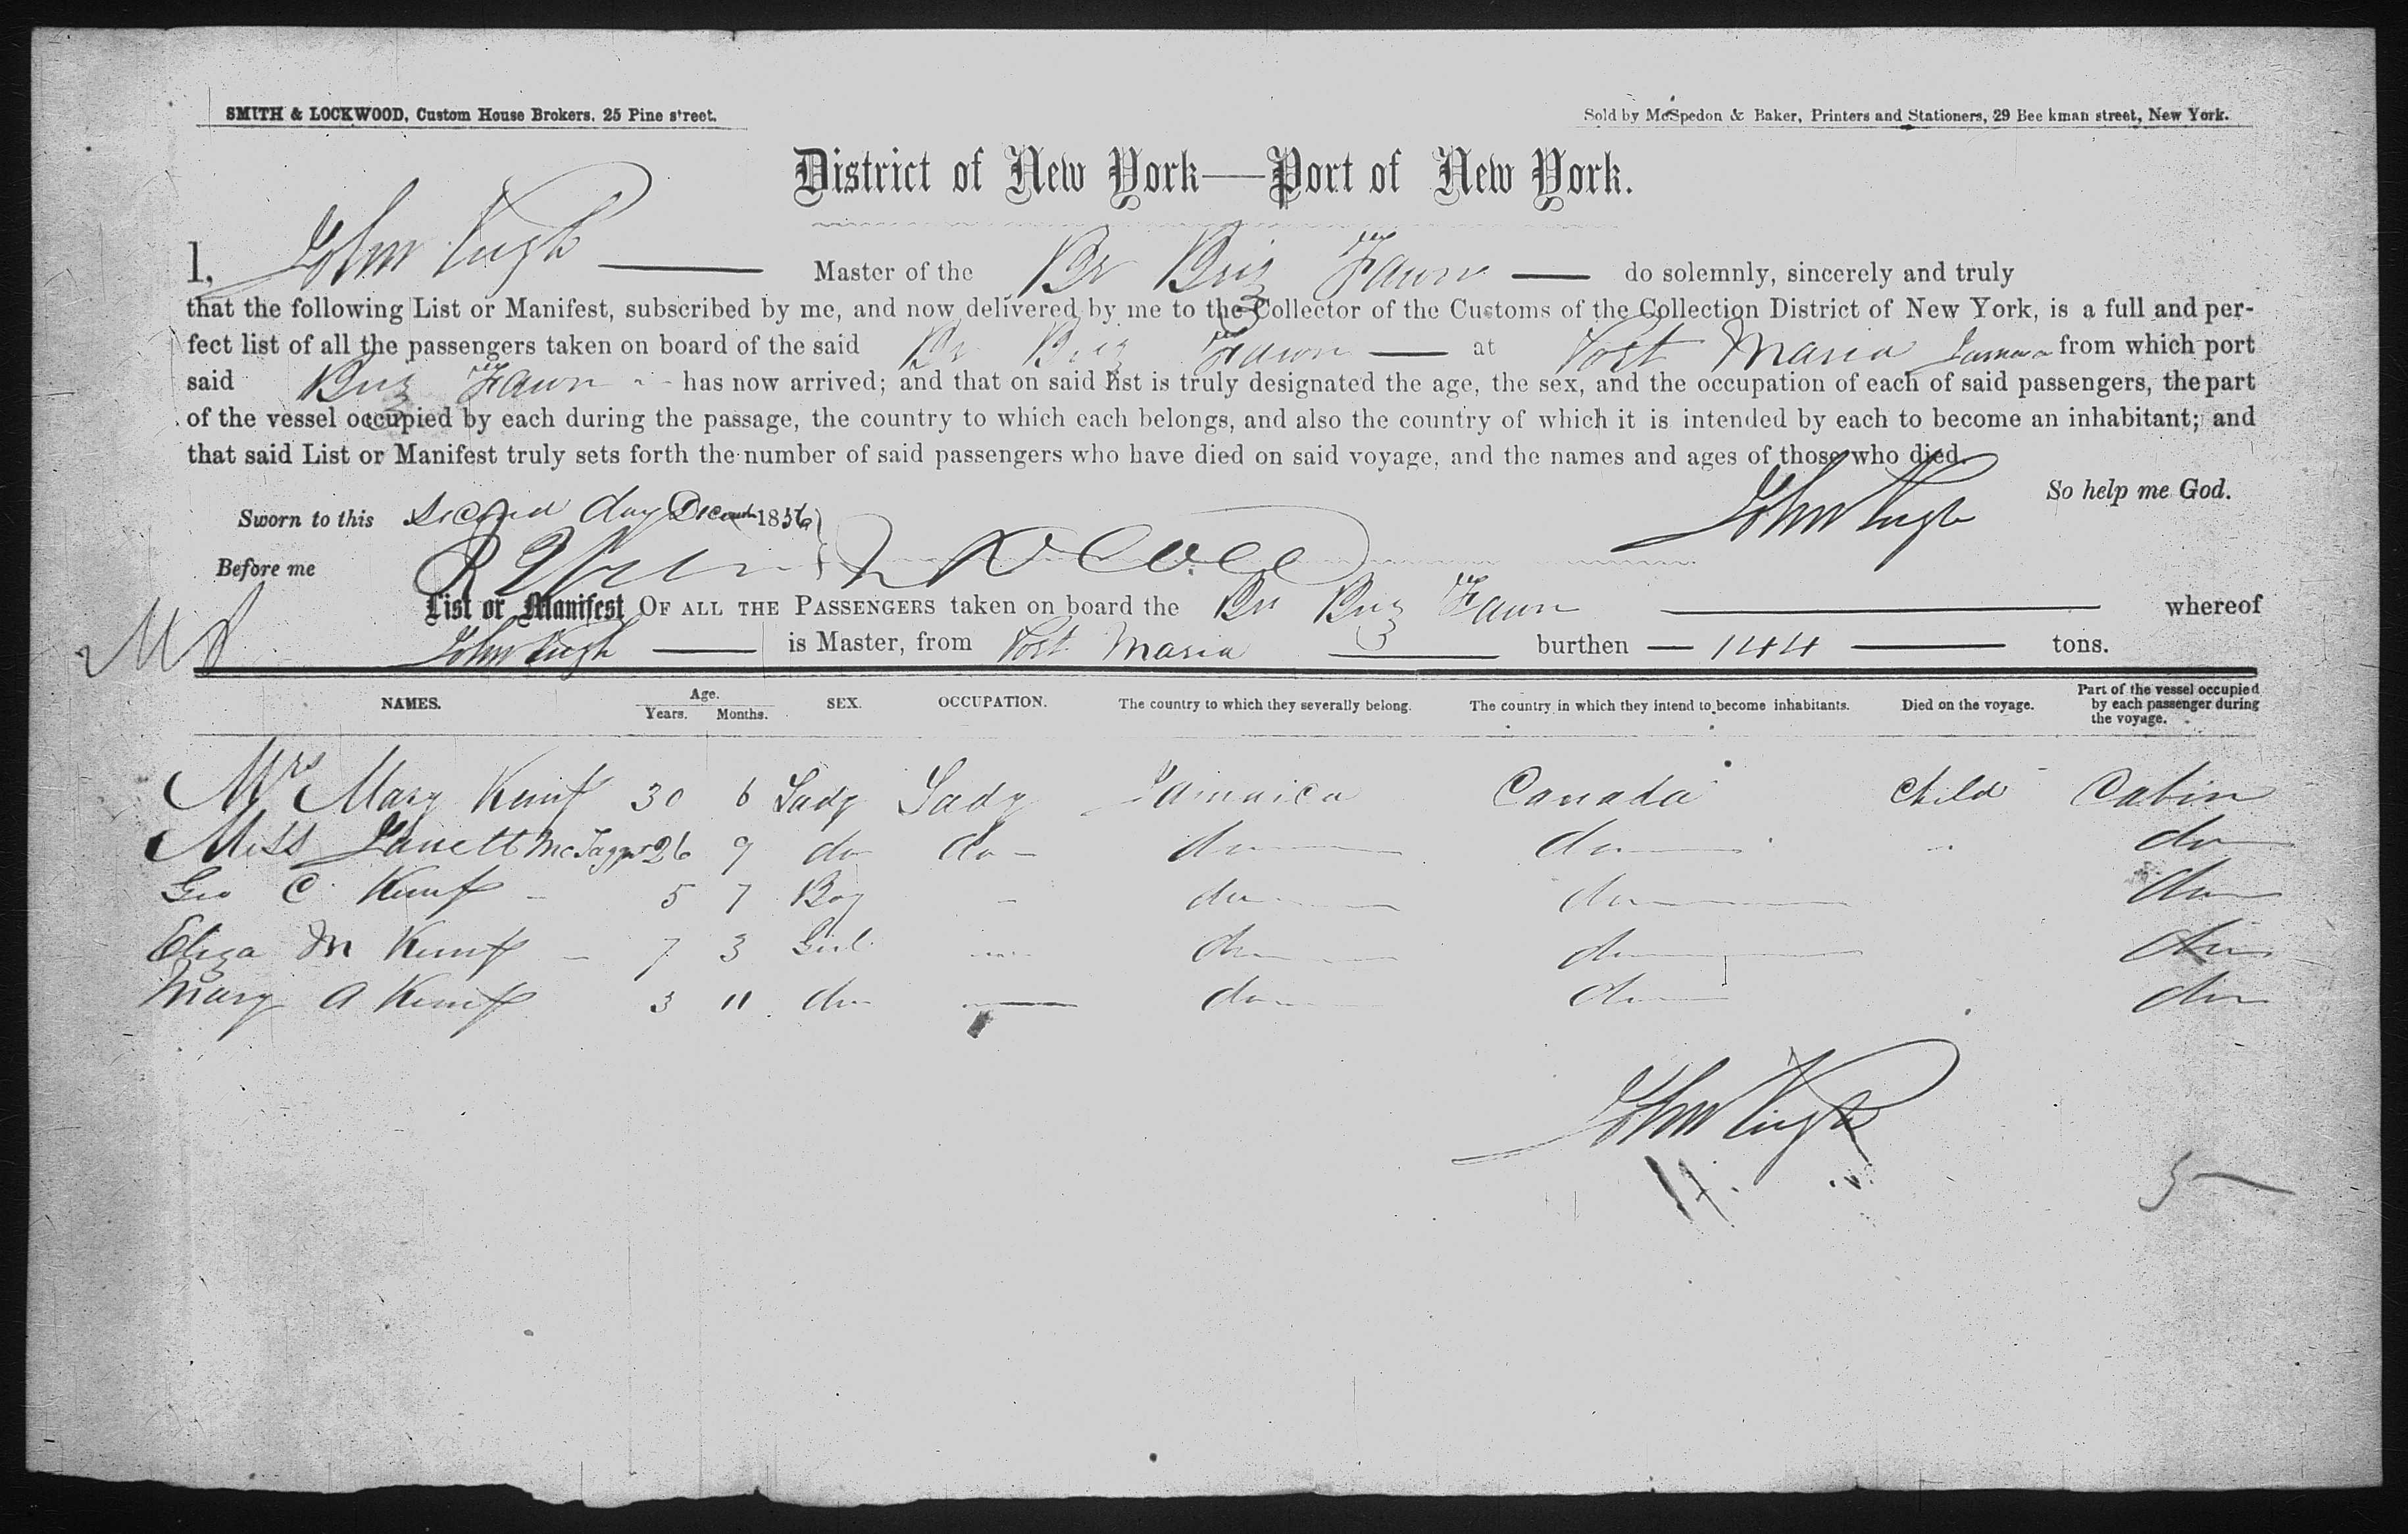 SMITH & LOCKWOOD, Custom House Brokers. 25 Pine street.
Sold by McSpedon & Baker, Printers and Stationers, 29 Beekman street, New York.
District of New York—Port of New York.
I, John Pugh — Master of the Br Brig Fawn — do solemnly, sincerely and truly
that the following List or Manifest, subscribed by me, and now delivered by me to the Collector of the Customs of the Collection District of New York, is a full and per-
fect list of all the passengers taken on board of the said Br Brig Fawn — at Port Maria Jamaica from which port
said Brig Fawn has now arrived; and that on said list is truly designated the age, the sex, and the occupation of each of said passengers, the part
of the vessel occupied by each during the passage, the country to which each belongs, and also the country of which it is intended by each to become an inhabitant; and
that said List or Manifest truly sets forth the number of said passengers who have died on said voyage, and the names and ages of those who died.
So help me God.
John Pugh
Sworn to this second day December 1856
Before me
List or Manifest OF ALL THE PASSENGERS taken on board the Br Brig Fawn — whereof
John Pugh — is Master, from Port Maria — burthen — 144 — tons.
NAMES. Age. Years. Months. SEX. OCCUPATION. The country to which they severally belong. The country in which they intend to become inhabitants. Died on the voyage. Part of the vessel occupied by each passenger during the voyage.
Mrs Mary Kemp 30 6 Lady Lady Jamaica Canada Child Cabin
Miss Janett 26 9 do do — do do do
Geo C. Kemp — 5 7 Boy - do do do
Eliza M Kemp — 7 3 Girl do do do
Mary A Kemp 3 11 do — do do do
John Pugh
5